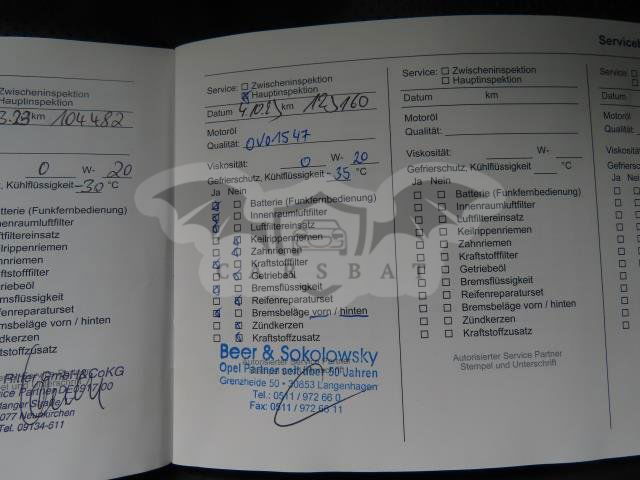 3.23 km 104482
0 W- 20
, Kühlflüssigkeit -30 °C
atterie (Funkfernbedienung)
nenraumluftfilter
ftfiltereinsatz
ilrippenriemen
hnriemen
aftstofffilter
riebeöl
msflüssigkeit
fenreparaturset
msbeläge vorn / hinten
dkerzen
ftstoffzusatz
Ritter GmbH & CoKG
ice Partner DE0917 00
077 Neunkirchen
Tel. 09134-611
Service: Zwischeninspektion
Hauptinspektion
Datum 4.10.23 km 125160
Motoröl
Qualität: OV01547
Viskosität: 0 W- 20
Gefrierschutz, Kühlflüssigkeit -35 °C
Ja Nein
Batterie (Funkfernbedienung)
Innenraumluftfilter
Luftfiltereinsatz
Keilrippenriemen
Zahnriemen
Kraftstofffilter
Getriebeöl
Bremsflüssigkeit
Reifenreparaturset
Bremsbeläge vorn / hinten
Zündkerzen
Kraftstoffzusatz
Beer & Sokolowsky
Opel Partner seit über 50 Jahren
Grenzheide 50 • 30853 Langenhagen
Tel.: 0511 / 972 66 0
Fax: 0511 / 972 66 11
Service: Zwischeninspektion
Hauptinspektion
Datum km
Motoröl
Qualität:
Viskosität: W-
Gefrierschutz, Kühlflüssigkeit °C
Ja Nein
Batterie (Funkfernbedienung)
Innenraumluftfilter
Luftfiltereinsatz
Keilrippenriemen
Zahnriemen
Kraftstofffilter
Getriebeöl
Bremsflüssigkeit
Reifenreparaturset
Bremsbeläge vorn / hinten
Zündkerzen
Kraftstoffzusatz
Autorisierter Service Partner
Stempel und Unterschrift
Service
Datum
Motoröl
Qualität
Viskosit
Gefriers
Ja Ne
CARSBAT